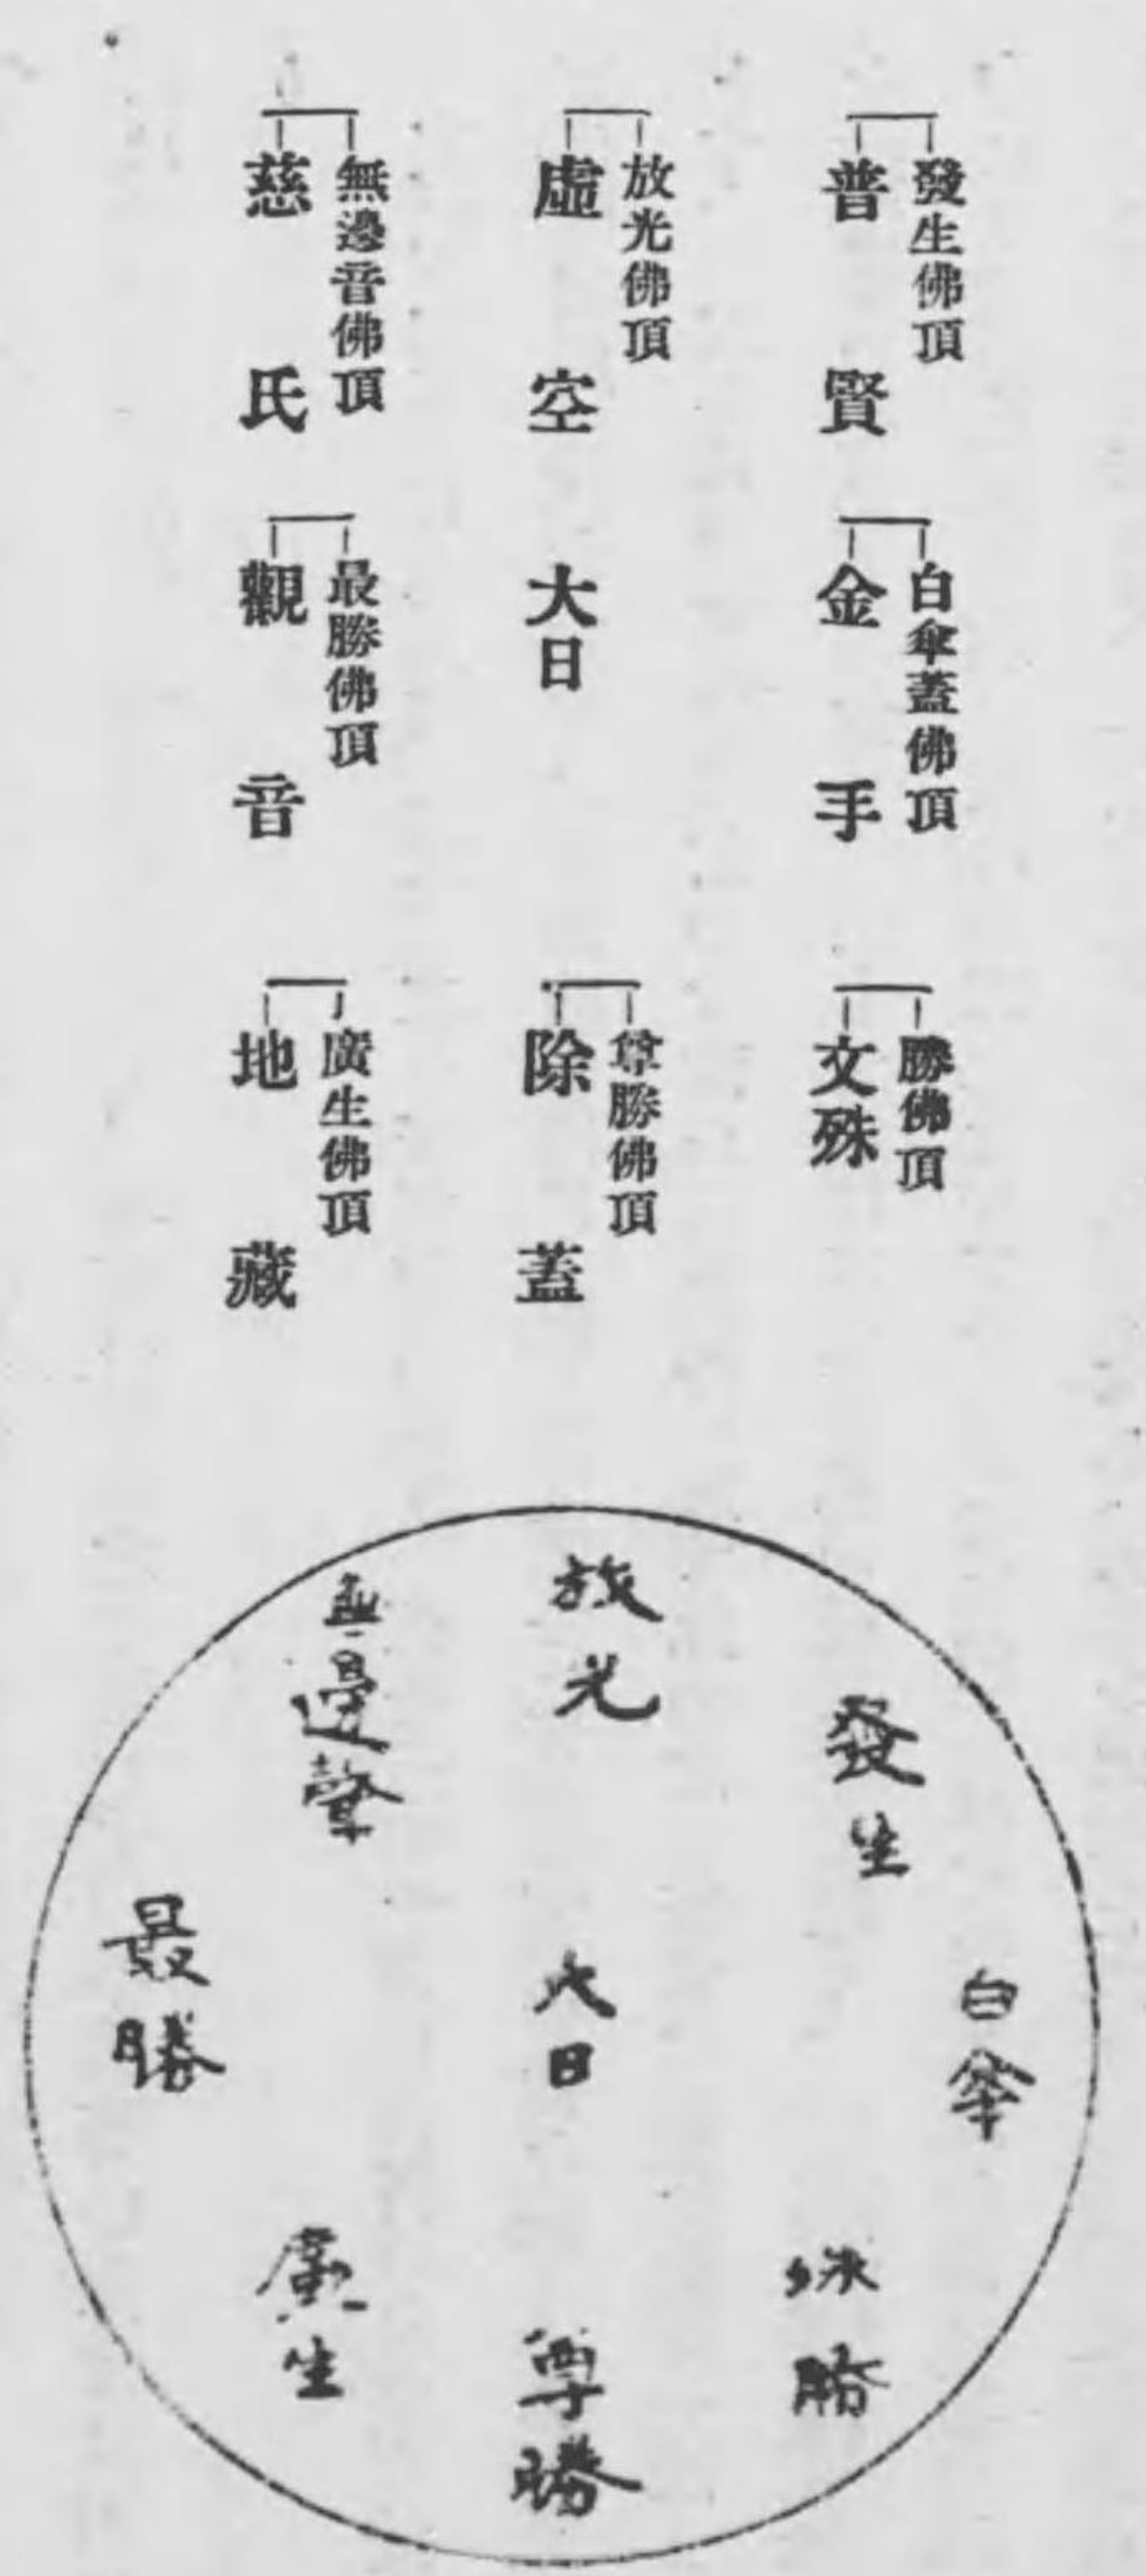 發生佛頂
普賢
白傘蓋佛頂
金手
勝佛頂
文殊
放光佛頂
虛空
大日
尊勝佛頂
除蓋
無邊音佛頂
慈氏
最勝佛頂
觀音
廣生佛頂
地藏
放光
發生
白傘
殊勝
尊勝
廣生
最勝
無邊聲
大日